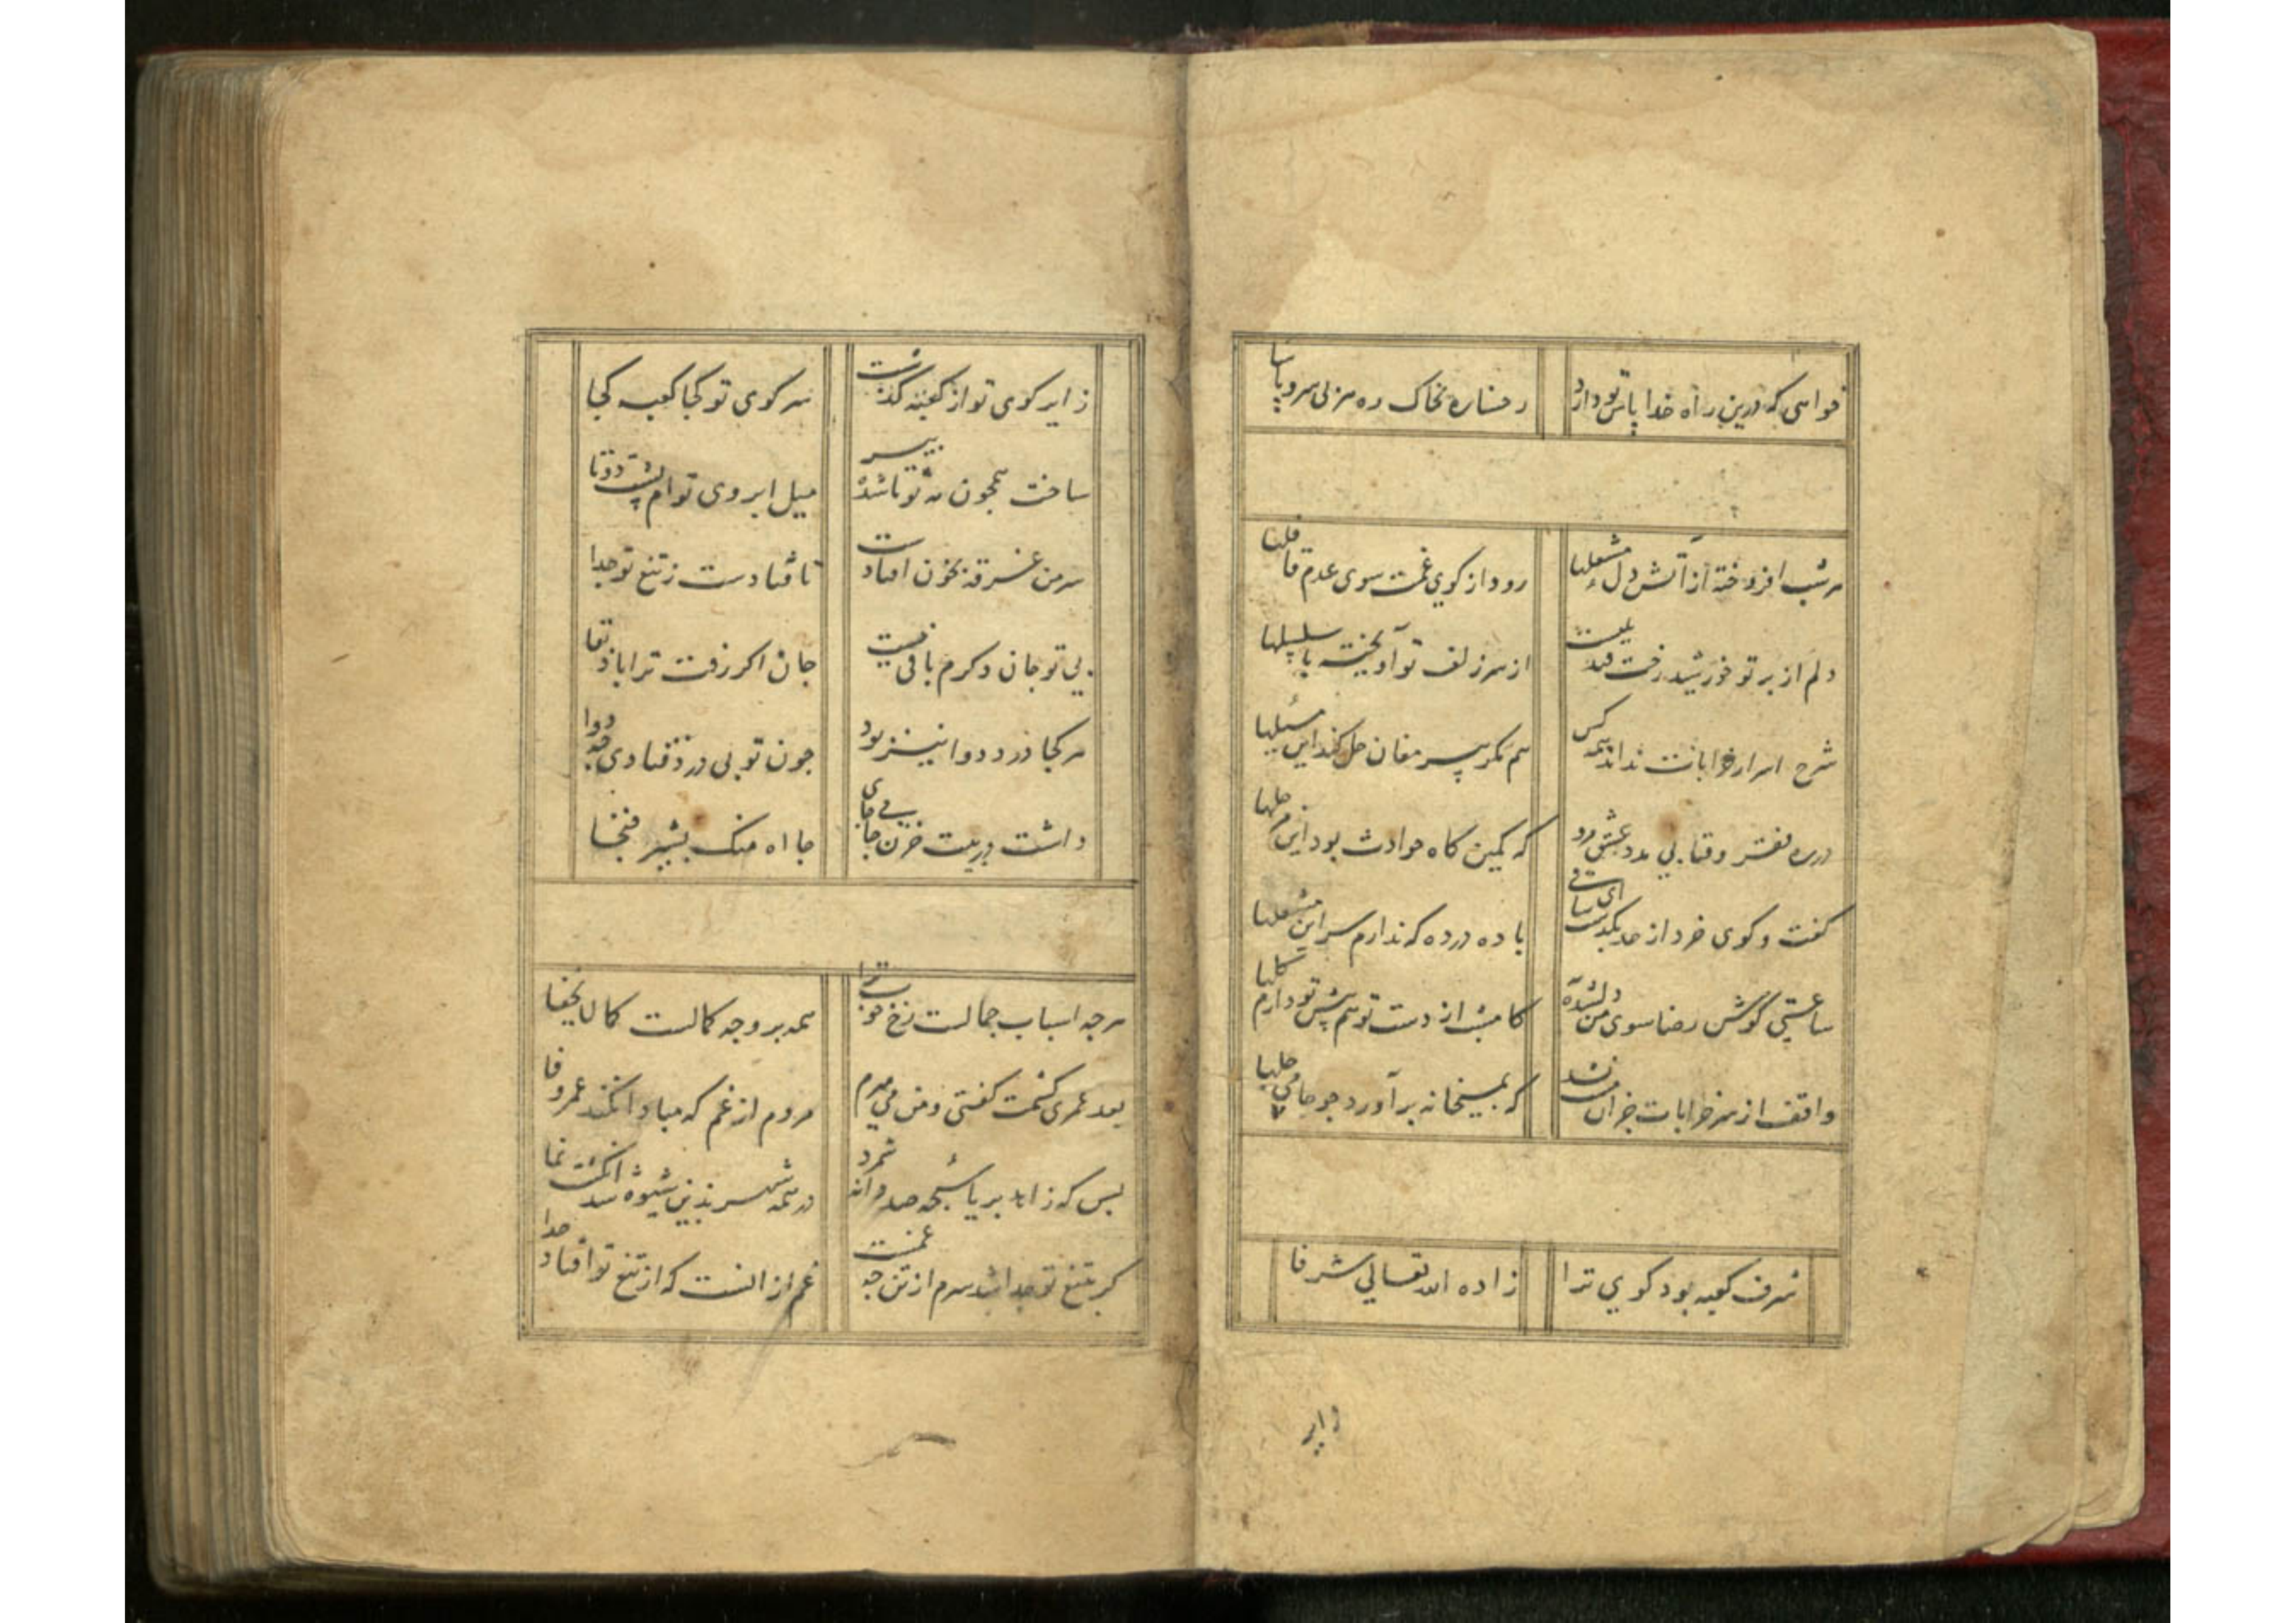 خواهی که درین راه خدا پاس تو دارد رخساره بخاک ره هر بی سر و پا سا
هر شب افروخته از آتش دل مشعلها رود از کوی غمت سوی عدم قافلها
دلم از بر تو خورشید رخت از سر زلف تو آویخته با سلسلها
شرح اسرار خرابات نداند همه کس هم مکر پیر مغان حل کند این مسئلها
در ره فقر و فنا بی مدد عشق مرو که کمین کاه حوادث بود این مرحلها
کفت و کوی خرد از حد بکذشت ای ساقی باده در ده که ندارم سر این مشغلها
ساعتی کوش رضا سوی من دلشده کامشب از دست تو هم پیش تو دارم کلها
واقف از سر خرابات جز آن مست نشد که بمیخانه برآورد چو جامی چلها
شرف کعبه بود کوی ترا زاده الله تعالی شرفا
زایر
زایر کوی تو از کعبه کذشت سر کوی تو کجا کعبه کجا
ساخت همچون مه نو تا شد پیر میل ابروی توام پشت دوتا
سر من غرقه بخون افتادست تا فتادست ز تیغ تو جدا
بی تو جان دکرم باقی نیست جان اکر رفت ترا باد بقا
هر کجا درد دوا نیز بود چون تو بی درد فتادی چه دوا
داشت در بیت حزن جامی جای جااه منک بشیر فنجا
هرچه اسباب جمالست رخ خوب ترا همه بر وجه کمالست کما لایخفا
بعد عمری کشمت کفتی و من می میرم مردم از غم که مبادا نکند عمر وفا
بس که زاهد بریا سبحه صد دانه شمرد در همه شهر بدین شیوه شد انکشت نما
کر بتیغ تو جدا شد سرم از تن چه غمست غم از آنست که از تیغ تو افتاد جدا